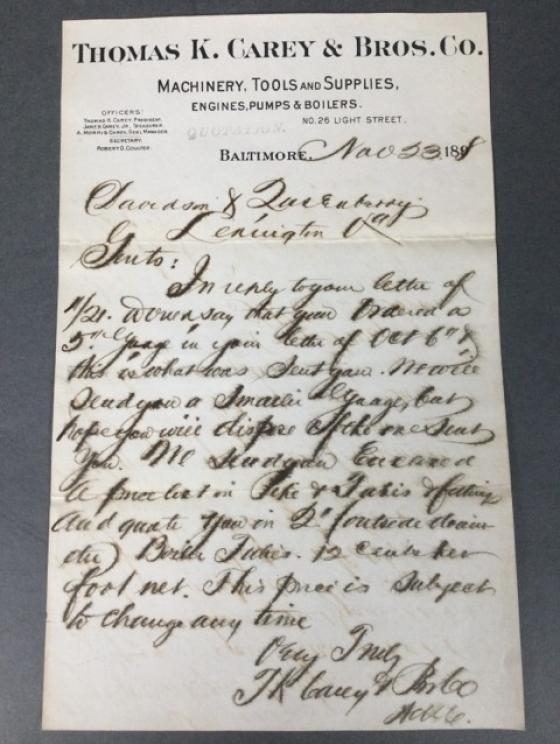 THOMAS K. CAREY & BROS. CO.
MACHINERY, TOOLS AND SUPPLIES,
ENGINES, PUMPS & BOILERS.
NO. 26 LIGHT STREET.
OFFICERS:
THOMAS K. CAREY, PRESIDENT.
JAMES CAREY, JR., TREASURER.
A. MORRIS CAREY, GENL. MANAGER.
SECRETARY,
ROBERT D. COULTER.
QUOTATION.
BALTIMORE, Nov 23 1898
Davidson & Quisenberry
Lexington Va
Gents:
In reply to your letter of
11/21. would say that you ordered a
5" gage in your letter of Oct 6th &
this is what was sent you. We will
send you a smaller gauge, but
hope you will dispose of the one sent
you. We send you Enclosed
a price list on Pipe & Tubes & fittings
and quote you on 2" (outside diam
eter) Boiler Tubes. 12 cents per
foot net. This price is subject
to change any time
Very Truly
TK Carey & Bro Co